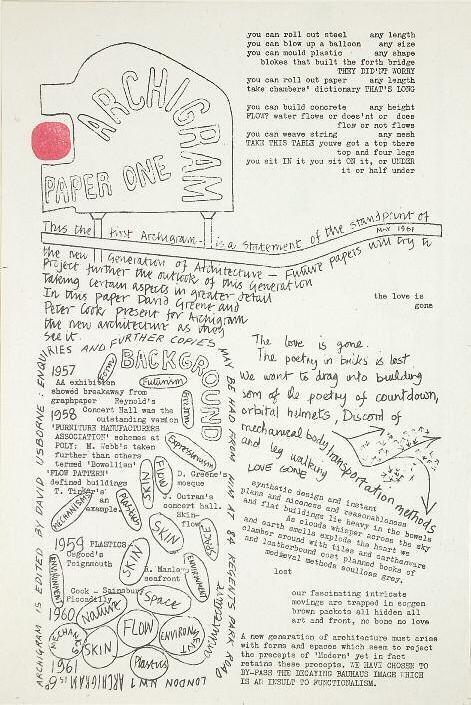 ARCHIGRAM
PAPER ONE
you can roll out steel any length
you can blow up a balloon any size
you can mould plastic any shape
blokes that built the forth bridge
THEY DID'NT WORRY
you can roll out paper any length
take chambers' dictionary THAT'S LONG
you can build concrete any height
FLOW? water flows or does'nt or does
flow or not flows
you can weave string any mesh
TAKE THIS TABLE youve got a top there
top and four legs
you sit IN it you sit ON it, or UNDER
it or half under
This the first Archigram - is a statement of the standpoint of
MAY 1961
the new Generation of Architecture - Future papers will try to
Project further the outlook of this Generation
Taking certain aspects in greater detail
In this paper David Greene and
Peter Cook present for Archigram
the new architecture as they
see it.
the love is
gone
The love is gone.
The poetry in bricks is lost
We want to drag into building
som of the poetry of countdown,
orbital helmets, Discord of
mechanical body transportation methods
and leg walking
LOVE GONE
ARCHIGRAM IS EDITED BY DAVID USBORNE : ENQUIRIES AND FURTHER COPIES MAY BE HAD FROM HIM AT 84 REGENTS PARK ROAD
LONDON NW1
BACKGROUND
1957
AA exhibition
showed breakaway from
graphpaper Reynold's
1958 Concert Hall was the
outstanding version
'FURNITURE MANUFACTURERS
ASSOCIATION' schemes at
POLY: M. Webb's taken
further than others
termed 'Bowellism'
'FLOW PATTERN'
defined buildings
example.
D. Greene's
mosque
Outram's
concert hall.
Skin-
flow
1959 PLASTICS
Osgood's
Teignmouth
Manlo
seafront
Cook - Sainsbury
Piccadilly
1960
1961
Futurism
Expressionism
MECHANISMS
SKIN
FLOW
SKIN
SPACE
SKIN
ENVIRONMENT
Nature
Space
FLOW
ENVIRONMENT
SKIN
Plastics
ARCHIGRAM
synthetic design and instant
plans and niceness and reasonableness
and flat buildings lie heavy in the bowels
As clouds whisper across the sky
and earth smells explode the heart we
clamber around with tiles and earthenware
and leatherbound cost planned books of
medieval methods soulless grey,
lost
our fascinating intricate
movings are trapped in soggen
brown packets all hidden all
art and front, no bone no love
A new generation of architecture must arise
with forms and spaces which seem to reject
the precepts of 'Modern' yet in fact
retains these precepts. WE HAVE CHOSEN TO
BY-PASS THE DECAYING BAUHAUS IMAGE WHICH
IS AN INSULT TO FUNCTIONALISM.